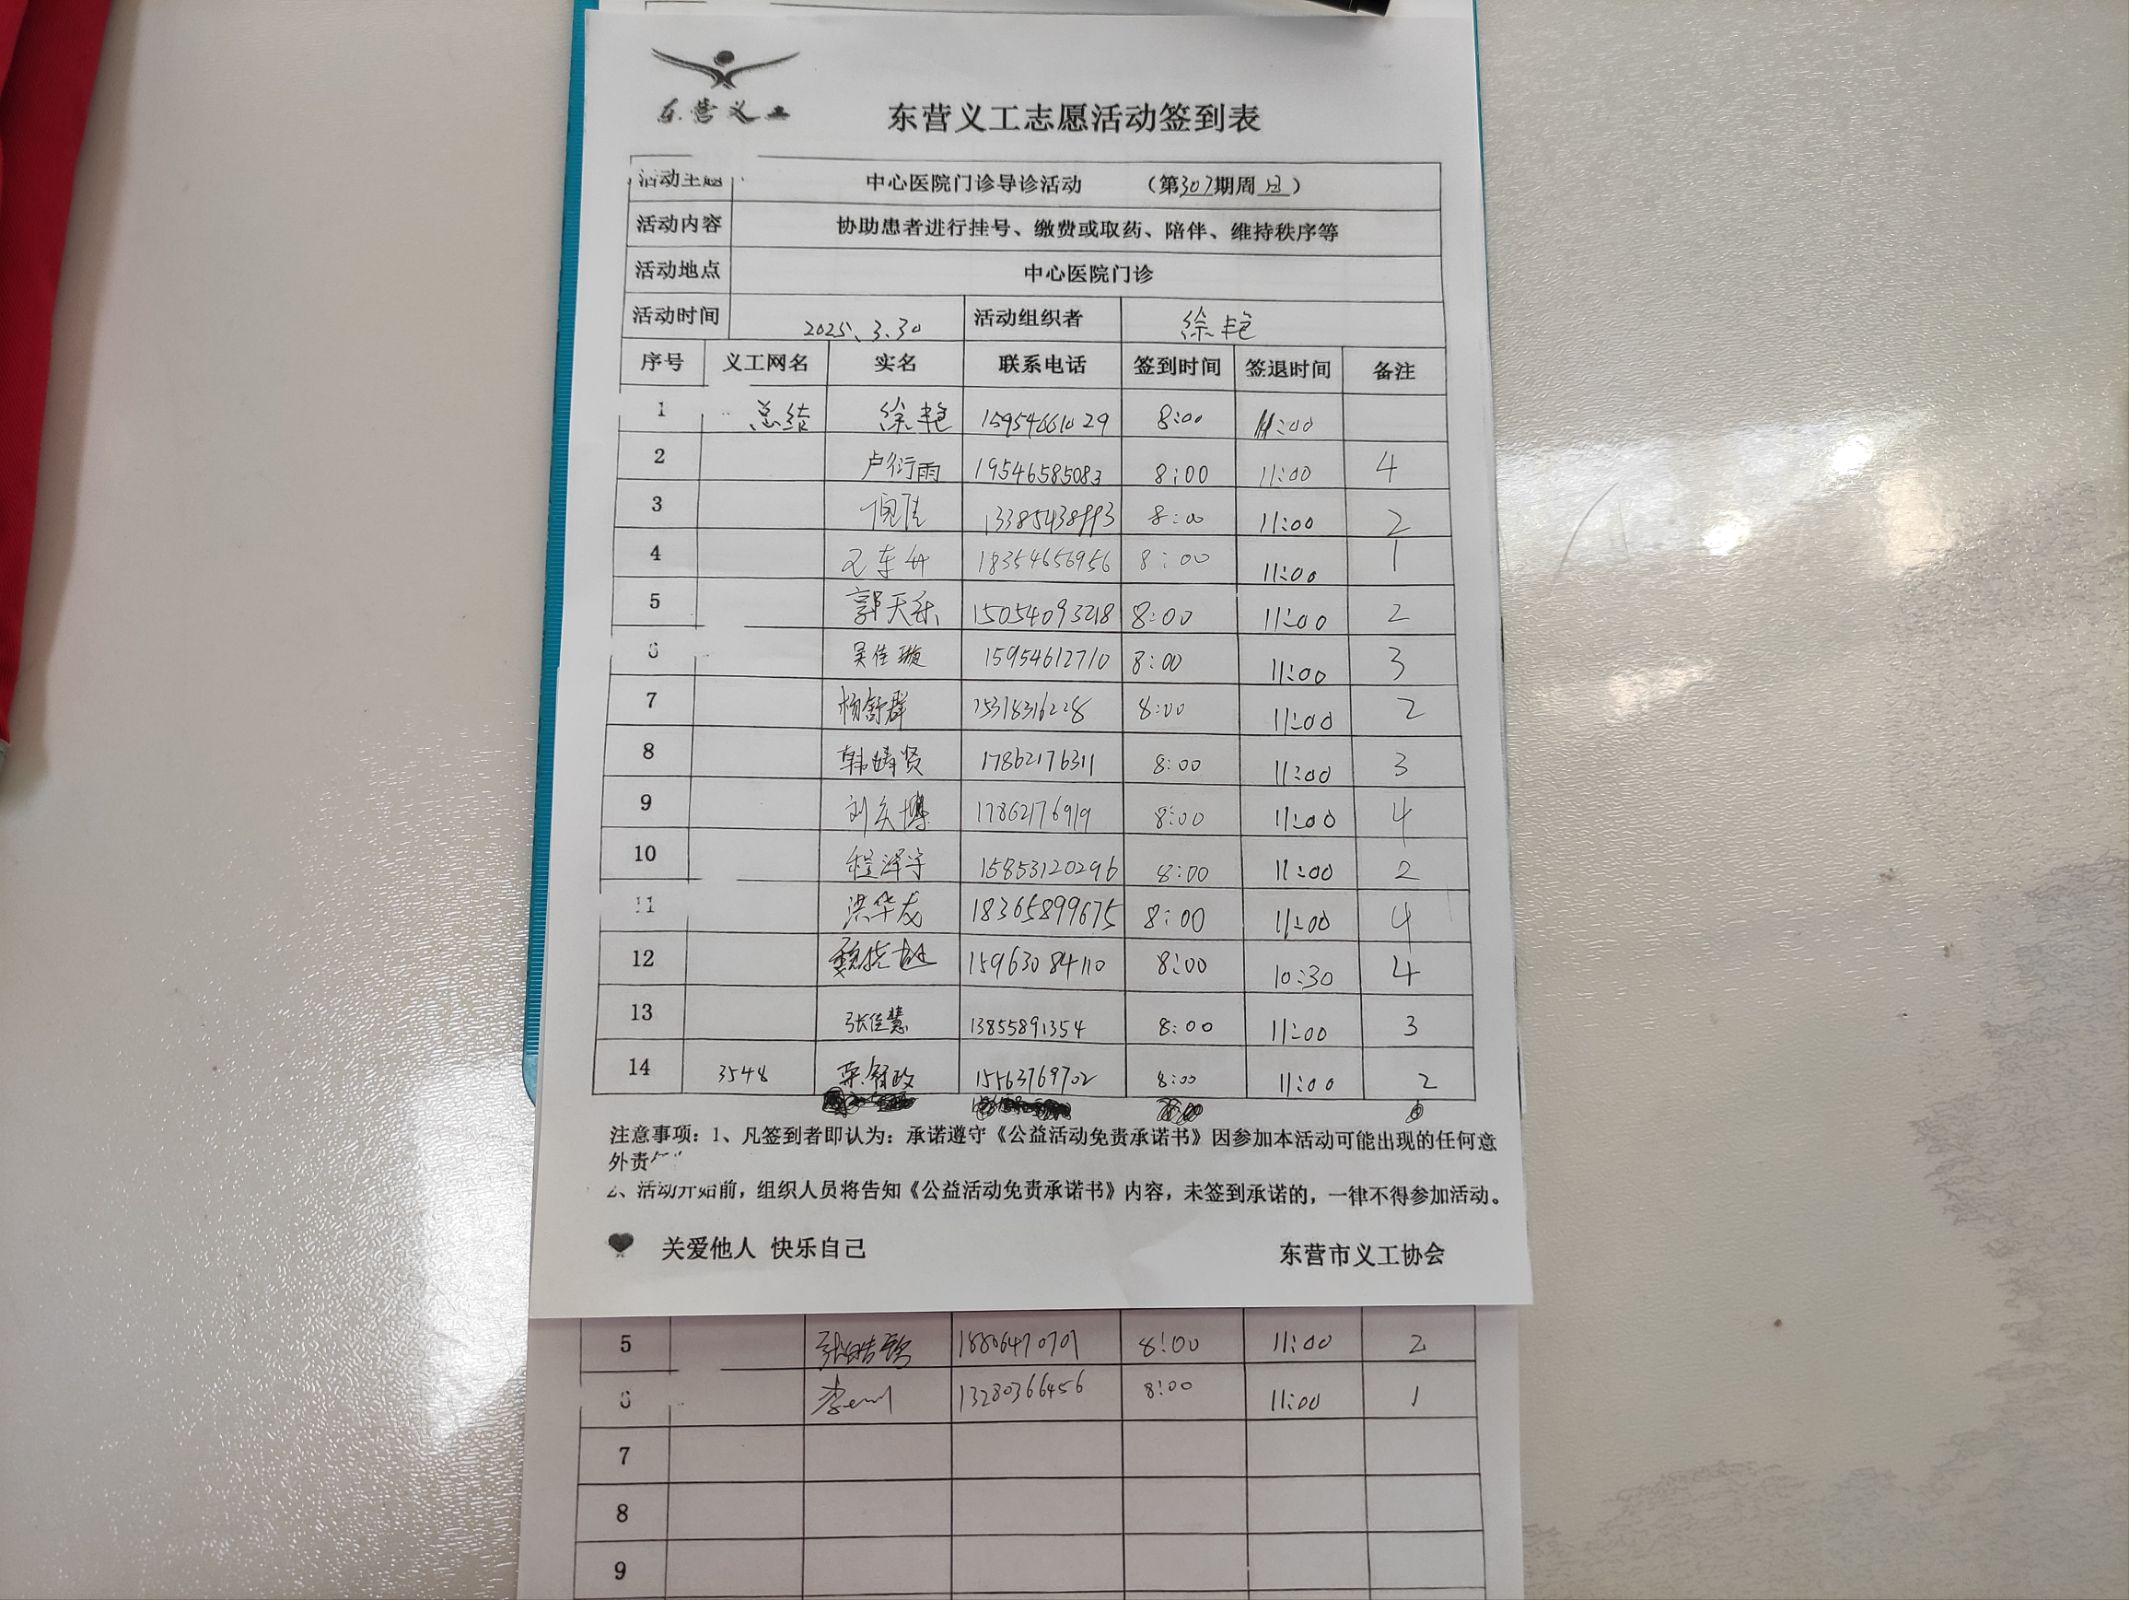 东营义工
东营义工志愿活动签到表
活动主题 中心医院门诊导诊活动 （第307期周日）
活动内容 协助患者进行挂号、缴费或取药、陪伴、维持秩序等
活动地点 中心医院门诊
活动时间 2025.3.30 活动组织者 徐艳
序号 义工网名 实名 联系电话 签到时间 签退时间 备注
1 总结 徐艳 15954661029 8:00 11:00
2 卢衍雨 19546585083 8:00 11:00 4
3 倪佳 8:00 11:00 2
4 18354656956 8:00 11:00 1
5 郭天乐 15054093218 8:00 11:00 2
6 吴佳璇 15954612710 8:00 11:00 3
7 杨舒群 15318316228 8:00 11:00 2
8 17862176311 8:00 11:00 3
9 刘庆博 17862176919 8:00 11:00 4
10 程泽宇 15853120296 8:00 11:00 2
11 洪华龙 18365899675 8:00 11:00 4
12 15963084110 8:00 10:30 4
13 张佳慧 13855891354 8:00 11:00 3
14 3548 15563769702 8:00 11:00 2
注意事项：1、凡签到者即认为：承诺遵守《公益活动免责承诺书》因参加本活动可能出现的任何意
外责
2、活动开始前，组织人员将告知《公益活动免责承诺书》内容，未签到承诺的，一律不得参加活动。
关爱他人 快乐自己 东营市义工协会
5 18806470701 8:00 11:00 2
6 13280366456 8:00 11:00 1
7
8
9